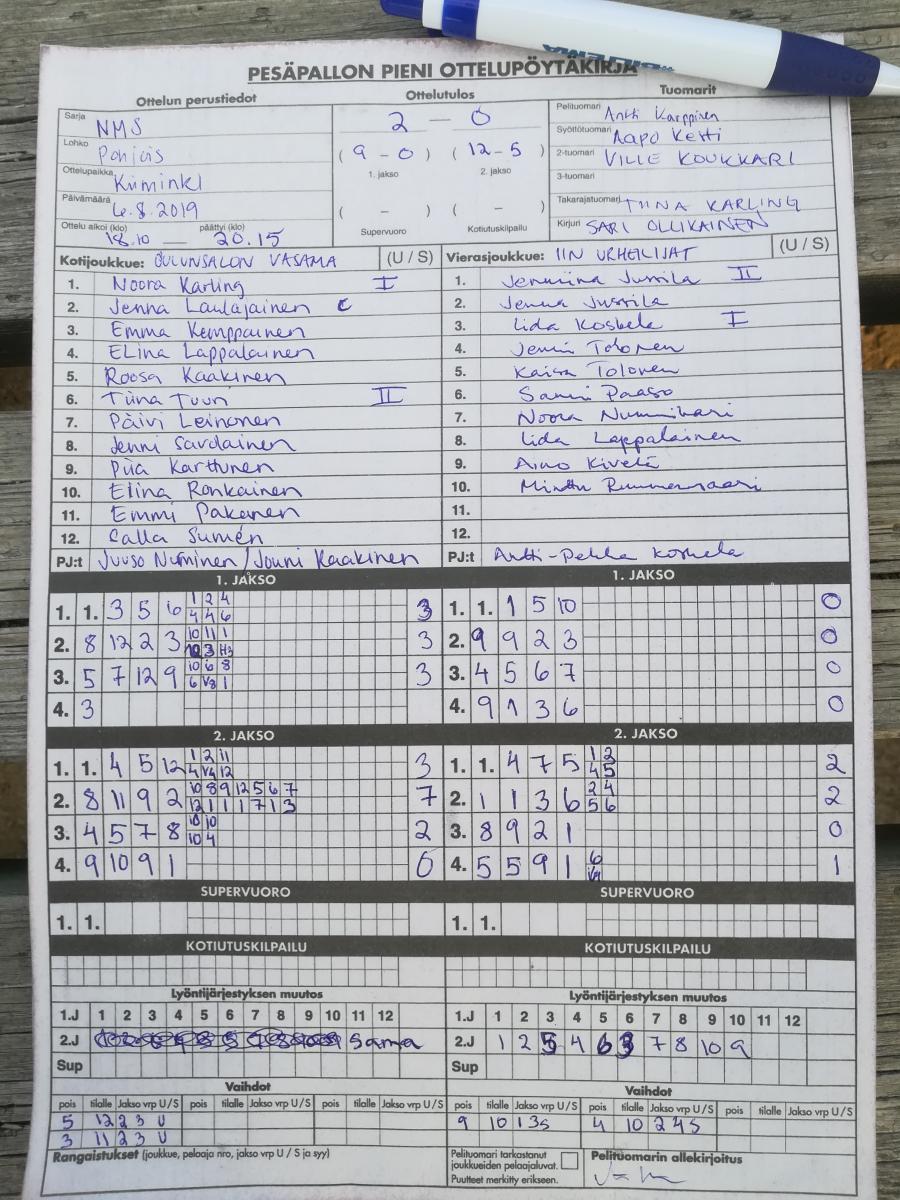 PESÄPALLON PIENI OTTELUPÖYTÄKIRJA
Ottelun perustiedot
Sarja NMS
Lohko Pohjois
Ottelupaikka Kiiminki
Päivämäärä 6.8.2019
Ottelu alkoi (klo) päättyi (klo)
18.10 — 20.15
Ottelutulos
2 — 0
( 9 - 0 ) ( 12 - 5 )
1. jakso 2. jakso
( - ) ( - )
Supervuoro Kotiutuskilpailu
Tuomarit
Pelituomari Antti Karppinen
Syöttötuomari Aapo Kesti
2-tuomari VILLE KOUKKARI
3-tuomari
Takarajatuomari TIINA KARLING
Kirjuri SARI OLLIKAINEN
Kotijoukkue: OULUNSALON VASAMA (U / S)
1. Noora Karling I
2. Jenna Laulajainen C
3. Emma Kemppainen
4. ELina Lappalainen
5. Roosa Kaakinen
6. Tiina Tuuri II
7. Päivi Leinonen
8. Jenni Savolainen
9. Piia Karttunen
10. Elina Ronkainen
11. Emmi Pakanen
12. Calla Sumén
PJ:t Juuso Nurminen / Jouni Kaakinen
Vierasjoukkue: IIN URHEILIJAT (U / S)
1. Jenniina Jussila II
2. Jenna Jussila
3. Iida Koskela I
4. Jenni Tolonen
5. Kaisa Tolonen
6. Sanni Paaso
7. Noora Nummikari
8. Iida Lappalainen
9. Aino Kivelä
10. Minttu
11.
12.
PJ:t Antti-Pekka Koskela
1. JAKSO
1. 1. 3 5 6 1 2 4 3
4 4 6
2. 8 12 2 3 10 11 1 3
10 3 H3
3. 5 7 12 9 10 6 8 3
6 V8 1
4. 3
1. JAKSO
1. 1. 1 5 10 0
2. 9 9 2 3 0
3. 4 5 6 7 0
4. 9 1 3 6 0
2. JAKSO
1. 1. 4 5 12 1 2 11 3
4 V4 12
2. 8 11 9 2 10 8 9 12 5 6 7 7
12 1 1 1 7 1 3
3. 4 5 7 8 10 10 2
10 4
4. 9 10 9 1 0
2. JAKSO
1. 1. 4 7 5 1 2 2
4 5
2. 1 1 3 6 2 4 2
5 6
3. 8 9 2 1 0
4. 5 5 9 1 6 1
SUPERVUORO
1. 1.
SUPERVUORO
1. 1.
KOTIUTUSKILPAILU
KOTIUTUSKILPAILU
Lyöntijärjestyksen muutos
1.J 1 2 3 4 5 6 7 8 9 10 11 12
2.J Sama
Sup
Lyöntijärjestyksen muutos
1.J 1 2 3 4 5 6 7 8 9 10 11 12
2.J 1 2 5 4 6 3 7 8 10 9
Sup
Vaihdot
pois tilalle Jakso vrp U / S pois tilalle Jakso vrp U / S pois tilalle Jakso vrp U / S
5 12 2 3 U
3 11 2 3 U
Vaihdot
pois tilalle Jakso vrp U / S pois tilalle Jakso vrp U / S pois tilalle Jakso vrp U / S
9 10 1 3 S 4 10 2 4 S
Rangaistukset (joukkue, pelaaja nro, jakso vrp U / S ja syy)
Pelituomari tarkastanut
joukkueiden pelaajaluvat.
Puutteet merkitty erikseen.
Pelituomarin allekirjoitus